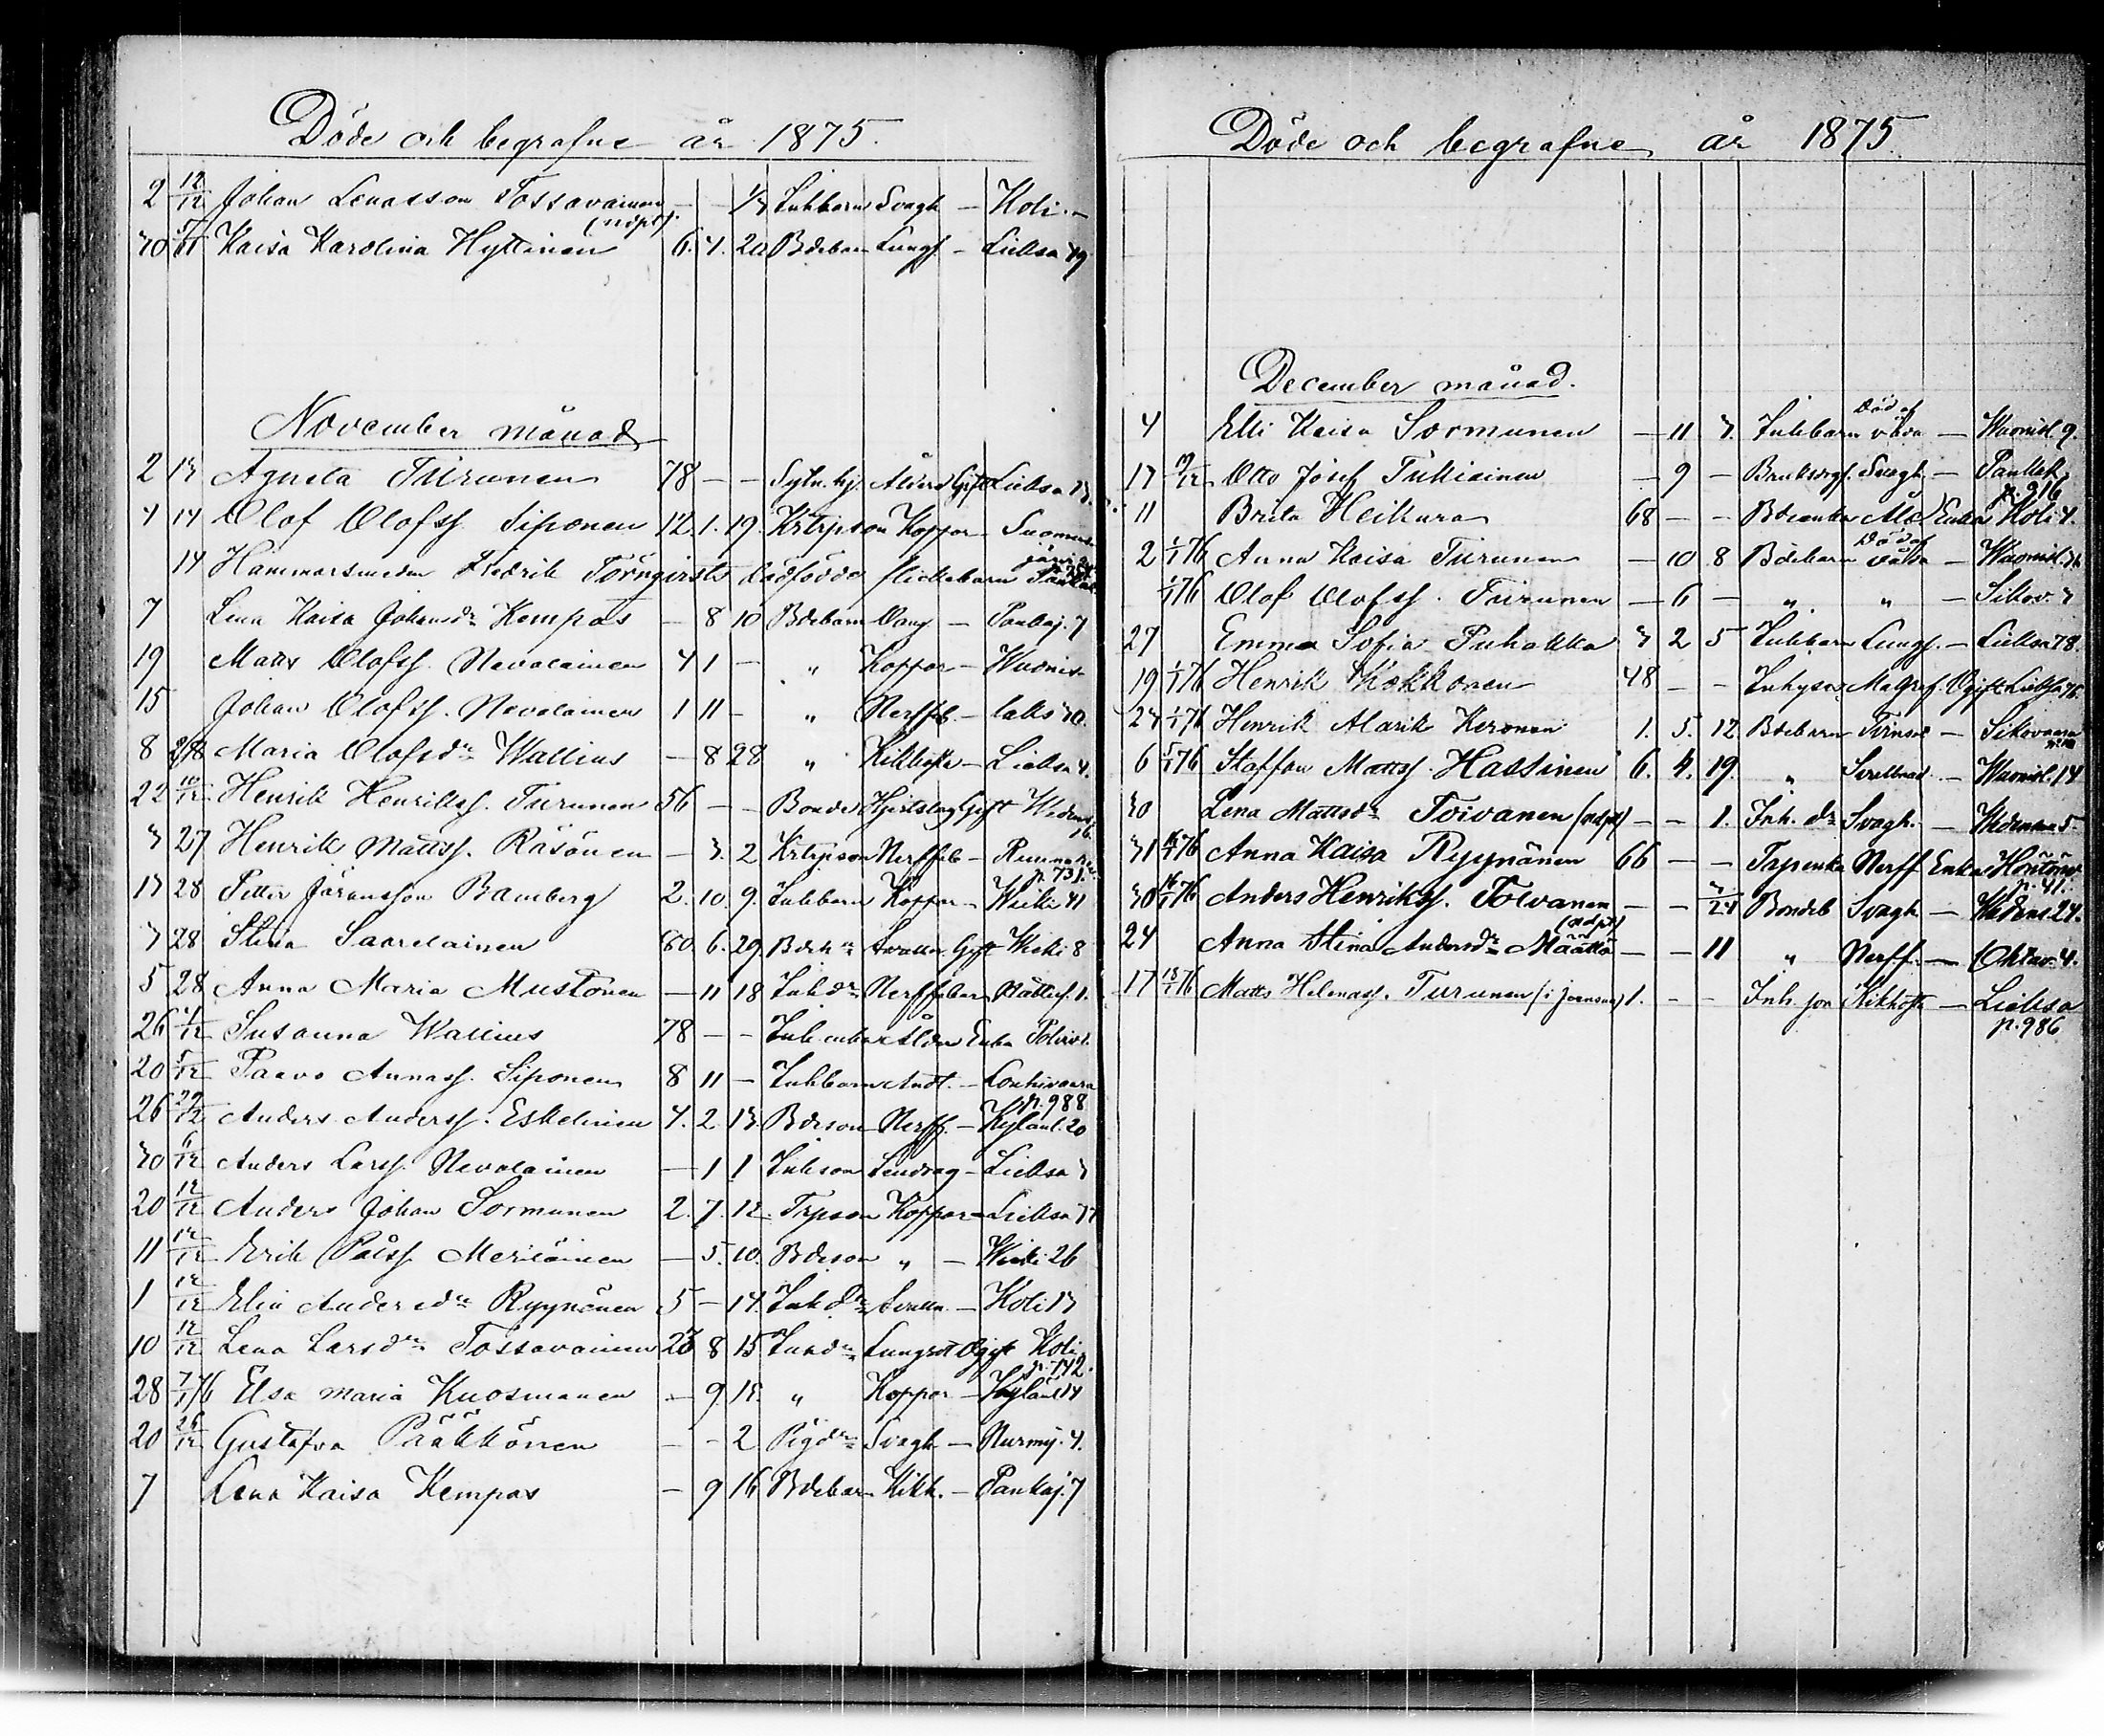 Döde och begrafne år 1875.
2 12/12 Johan Lenasson Tossavainen (ndpt) — — 1/3 Inhbarn Svagh — Koli —
30 5/11 Kaisa Karolina Hyttinen 6. 4. 20 Bdebarn Lungs. — Lieksa 49
November månad
2 13 Agneta Turunen 78 — — Sytn. hj. Ålderd Gift Lieksa 13.
4 14 Olof Olofss. Siponen 12. 1. 19. Krtrpson Koppor —
14 Hammarsmeden Fredrik Törnqvists dödfödda flickebarn
7 Lena Kaisa Johansdr Kempas — 8 10 Bdebarn — Pankaj. 7
19 Matts Olofss. Nevalainen 4 1 — " Koppor — Wuonis.
15 Johan Olofss. Nevalainen 1 11 — " Nerffeb. —
8 28 Maria Olofsdr Wallius — 8 28 " Kikhosta — Lieksa 4.
22 10/12 Henrik Henrikss. Turunen 56 — — Bonde Hjertslag Gift
3 27 Henrik Mattss. Räsönen — 3. 2 Krtrpson Nerffeb —
p. 731.
13 28 Petter Göransson Bamberg 2. 10. 9. Inhbarn Koppor — Wieki 41
3 28 Stina Saarelainen 60. 6. 29. Gift Wieki 8
5 28 Anna Maria Mustonen — 11 18 Inhdr Nerffeber 1.
26 4/12 Susanna Wallius 78 — — Inh. enka Ålder Enka
20 5/12 Paavo Annass. Siponen 8 11 — Inhbarn Andt. — Louhivaara
p. 988
26 29/12 Anders Anderss. Eskelinen 4. 2. 13. Bdeson Nerff. — Kylänl. 20
30 6/12 Anders Larss. Nevalainen — 1 1 Inhson — Lieksa 3
20 12/12 Anders Johan Sormunen 2. 7. 12. Trpson Koppor — Lieksa 77
11 12/12 Erik Pålss. Meriläinen — 5. 10. Bdeson " — Wieki 26
1 12/12 Elin Andersdr Ryynänen 5 — 14. Inhdr — Koli 13
10 12/12 Lena Larsdr Tossavainen 23 8 15 Inhdr Lungsot Ogift Koli
p. 142.
28 7/1 76 Elsa Maria Kuosmanen — 9. 15. " Koppor — Kylänl 14
20 26/12 Gustafva Pääkkönen — — 2 Pigdr Svagh — Nurmij. 4.
7 Lena Kaisa Kempas — 9 16 Bdebarn Kikh. — Pankaj. 7
Döde och begrafne år 1875.
December månad.
4 Elli Kaisa Sormunen — 11 3. Inhbarn Död af våda — Wuonisl. 9.
17 19/12 Otto Josef Tukiainen — 9 — Svagh. — Pankak
p. 916
11 Brita Heikura 68 — — Bdeenka Åld. Enka Koli 4.
2 1/1 76 Anna Kaisa Turunen — 10 8 Bdebarn Död af våda — Wuonisl.
1/1 76 Olof Olofss. Turunen — 6 — " " — Sikov. 3
27 Emma Sofia Puhakka 3 2 5 Inhbarn Lungs. — Lieksa 78.
19 1/1 76 Henrik Kokkonen 48 — — Inhyses Ogift Lieksa
23 1/1 76 Henrik Alarik Keronen 1. 5. 12. Bdebarn — Sikovaara
6 5/1 76 Staffan Mattss. Hassinen 6. 4. 19. " — Wuonisl. 14
30 Lena Mattsdr Toivanen (ndpt) — — 1. Inh. dr Svagh. — 5.
31 16/1 76 Anna Kaisa Ryynänen 66 — — Trpenka Nerff Enka
p. 41.
30 16/1 76 Anders Henrikss. Toivanen — — 3/24 Bondeb Svagh — 24.
24 Anna Stina Andersdr Määttä (ndpt) — — 11 " Nerff. — 4.
17 13/1 76 Matts Helenass. Turunen 1. — — Inh. son Kikhost — Lieksa
p. 986